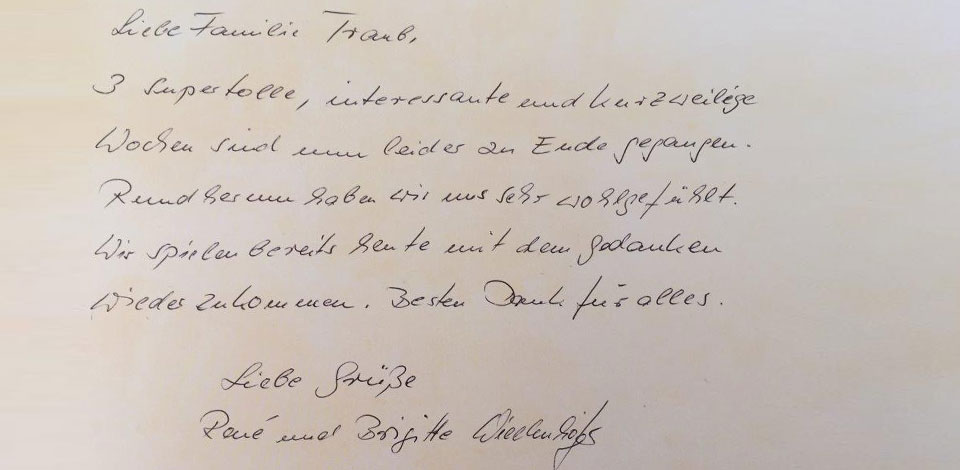 Liebe Familie Traub,
3 supertolle, interessante und kurzweilige
Wochen sind nun leider zu Ende gegangen.
Rundherum haben wir uns sehr wohlgefühlt.
Wir spielen bereits heute mit dem Gedanken
wieder zukommen. Besten Dank für alles.
Liebe Grüße
René und Brigitte